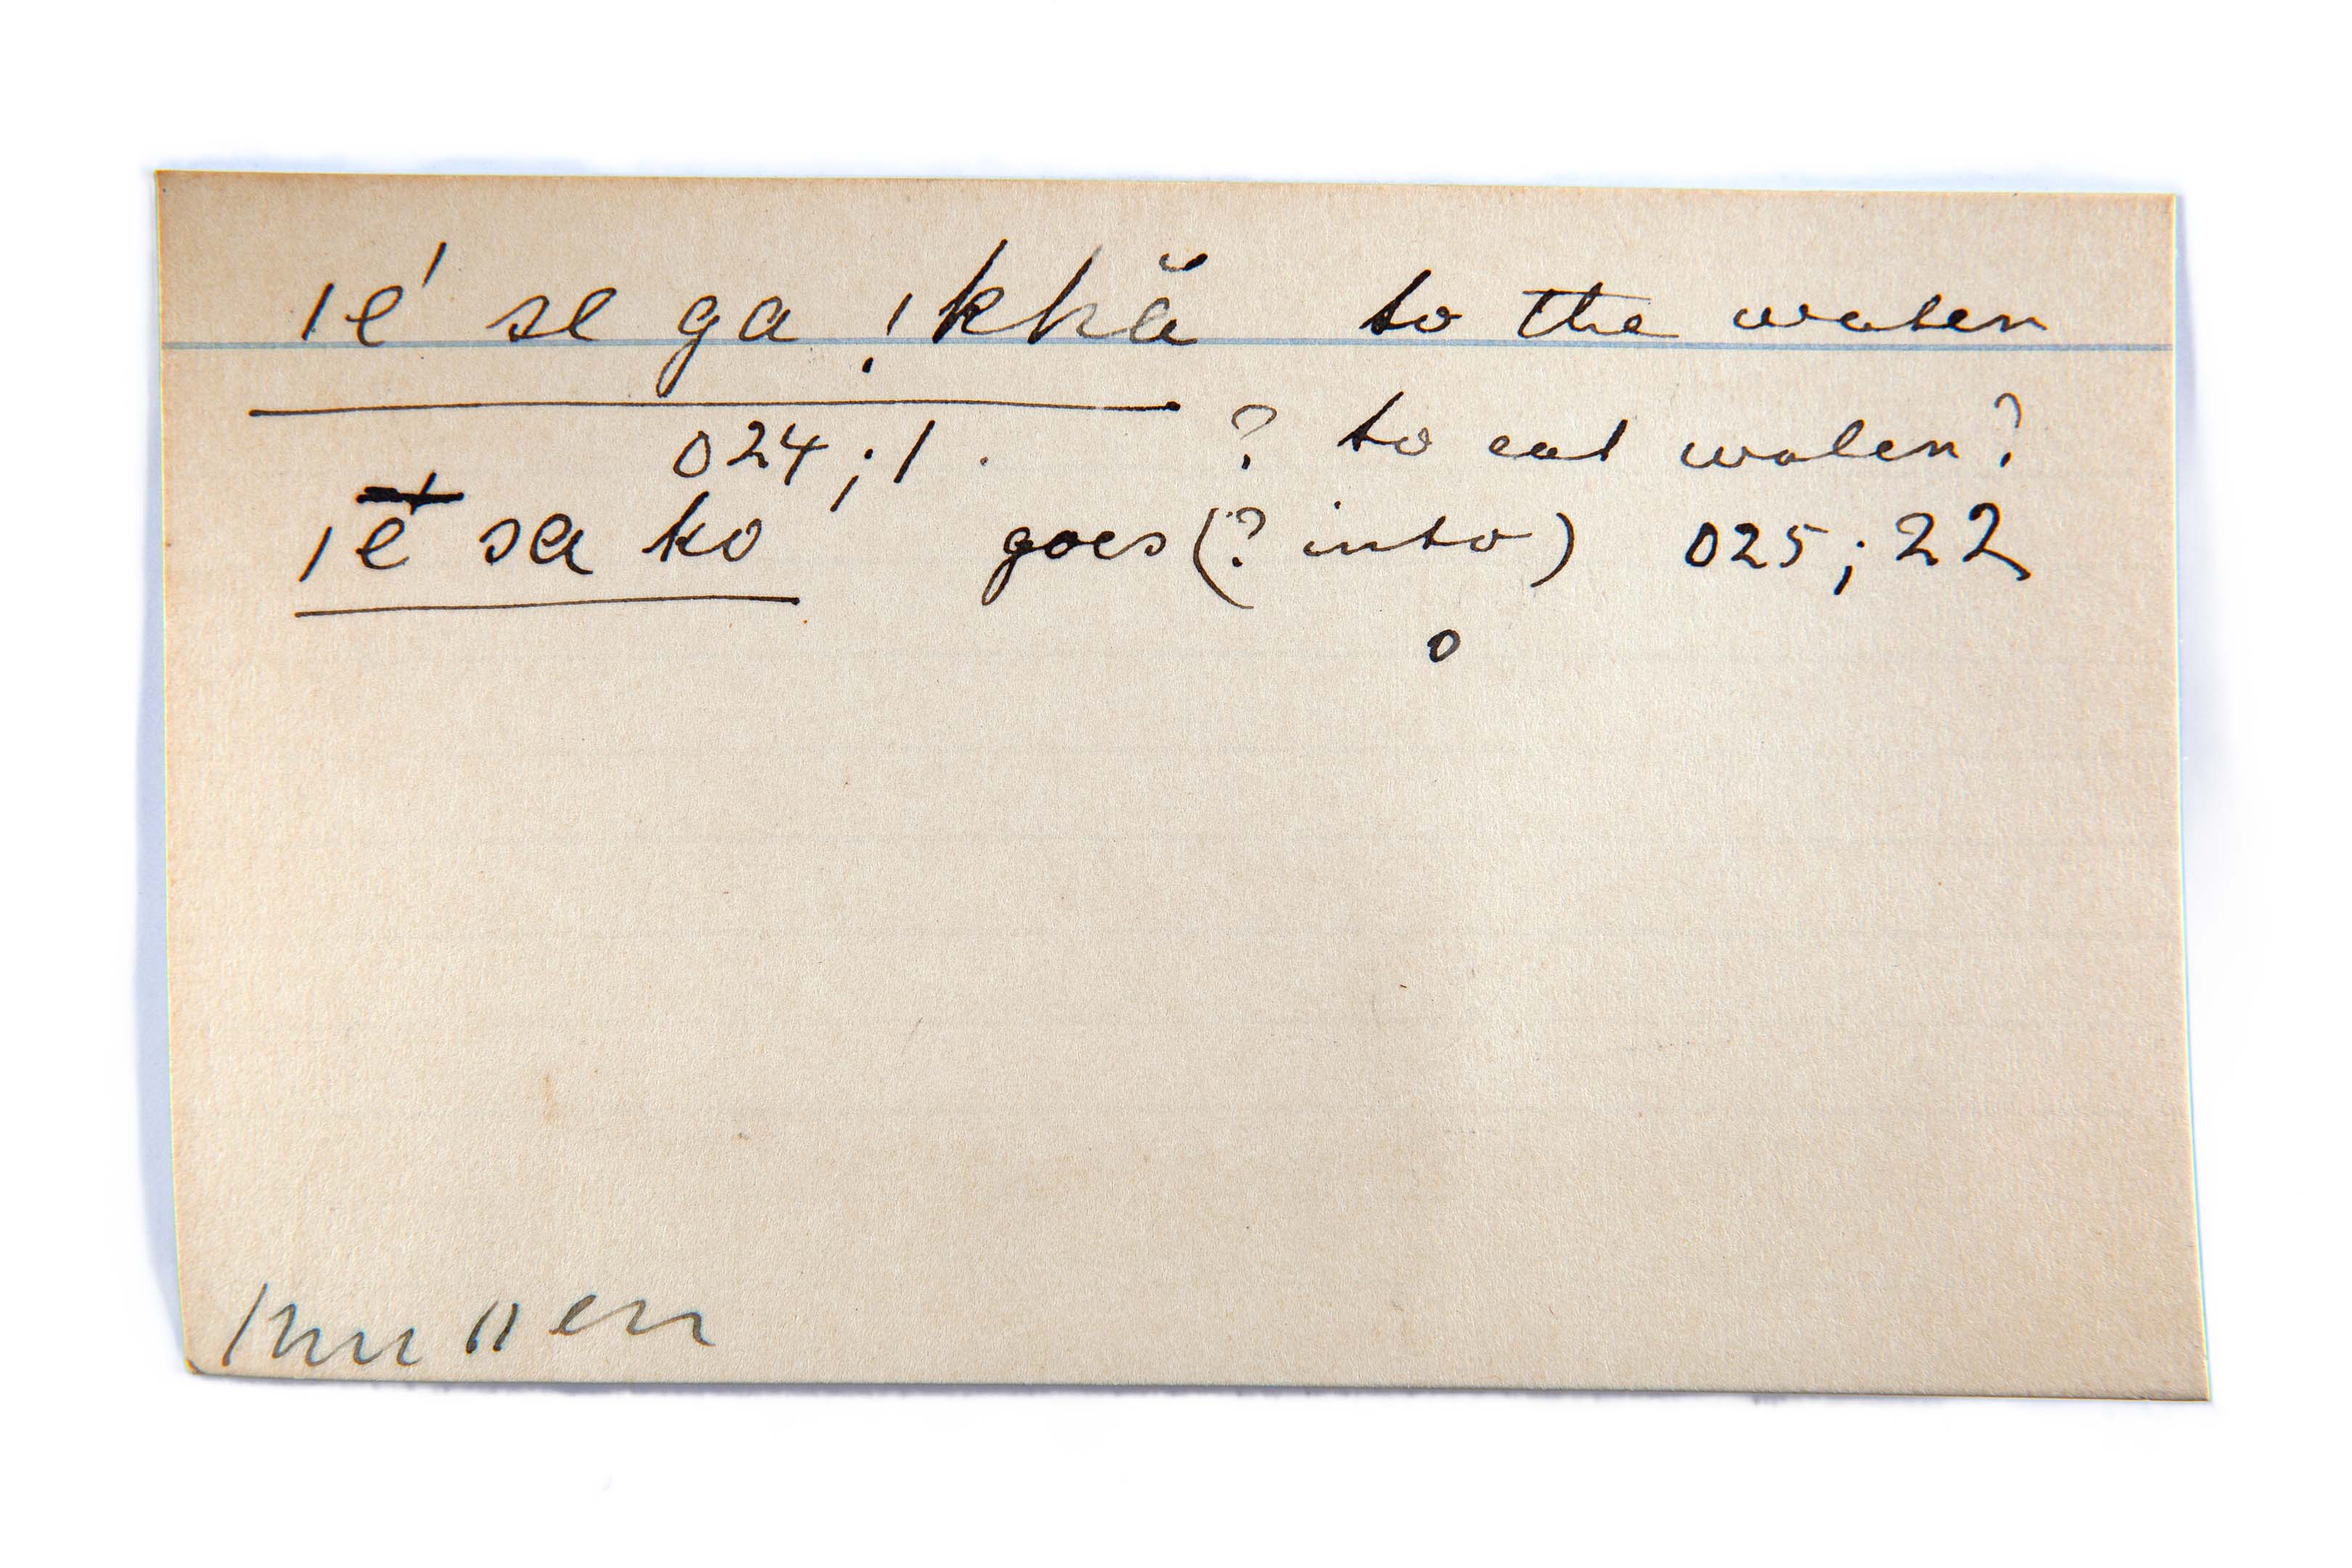 ǀé se ga ! khã̆ to the water
024;1. ? to eat water?
ǀé sa ko goes (? into) 025;22
o